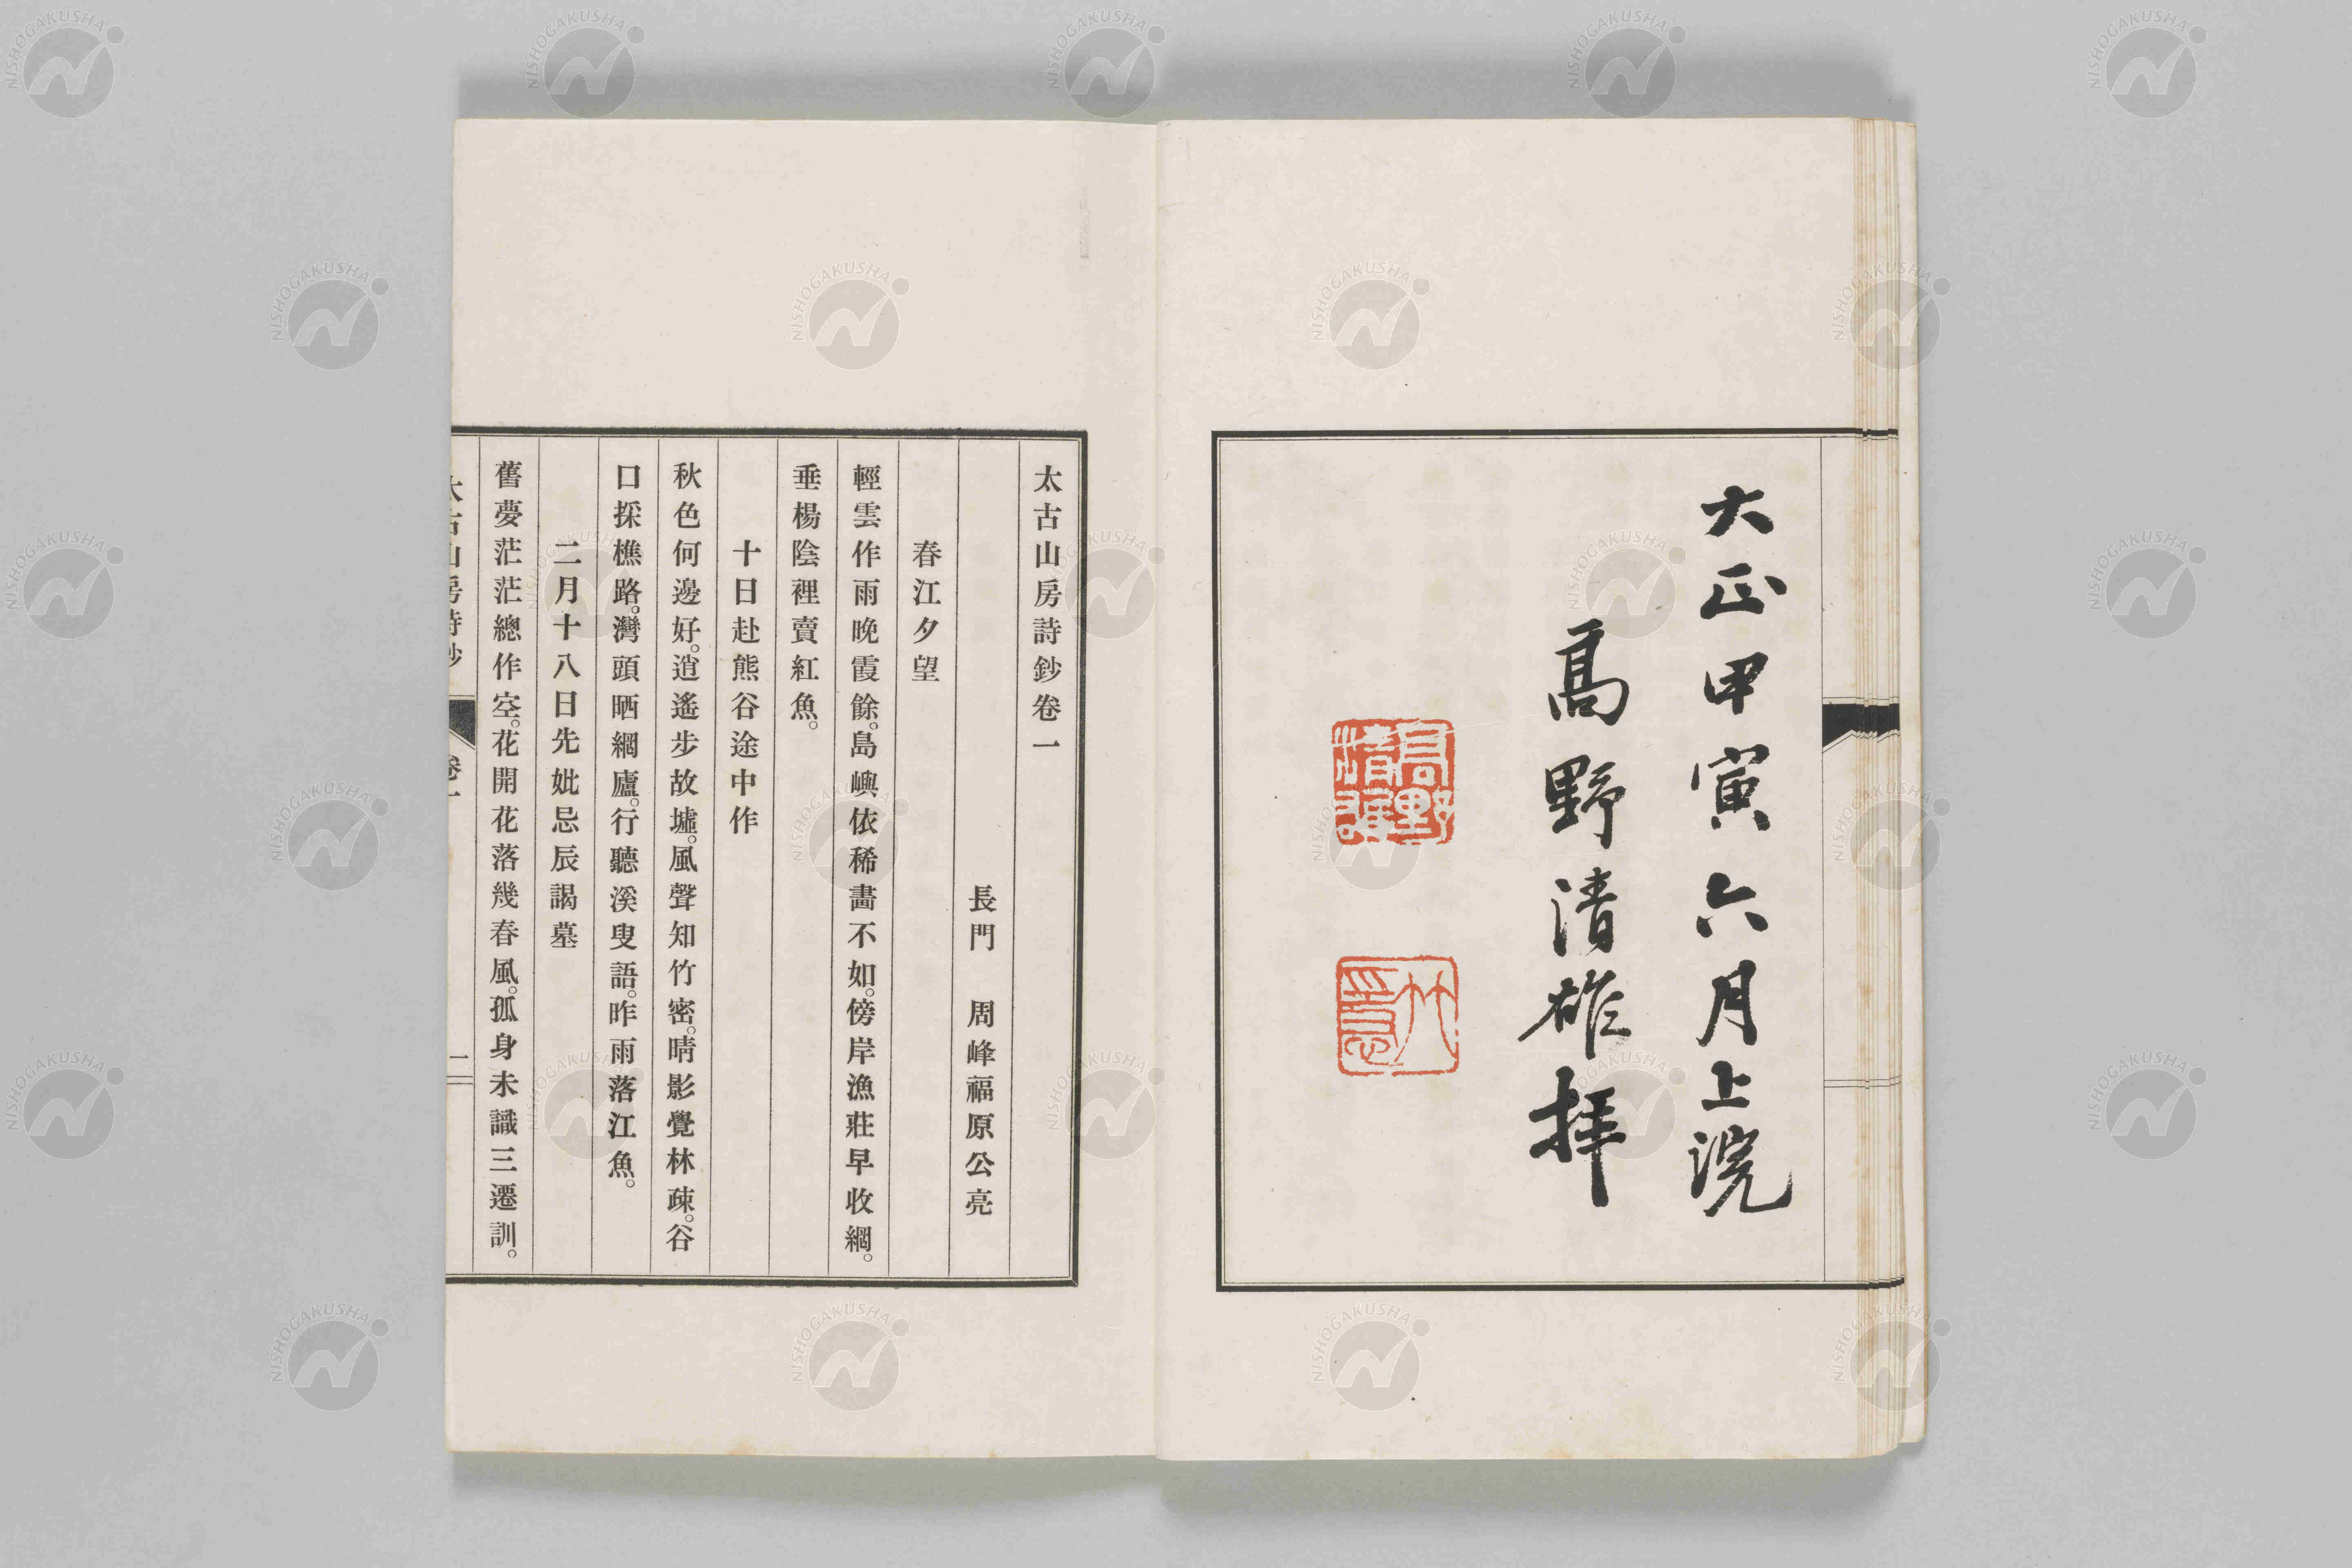 大正甲寅六月上浣
高野清雄拝
高野清雄
竹隱
太古山房詩鈔卷一
長門　周峰福原公亮
春江夕望
輕雲作雨晚霞餘。島嶼依稀畵不如。傍岸漁莊早收網。
垂楊陰裡賣紅魚。
十日赴熊谷途中作
秋色何邊好。逍遙步故墟。風聲知竹密。晴影覺林疎。谷
口採樵路。灣頭晒網廬。行聽溪叟語。昨雨落江魚。
二月十八日先妣忌辰謁墓
舊夢茫茫總作空。花開花落幾春風。孤身未識三遷訓。
太古山房詩鈔　卷一　一
NISHOGAKUSHA